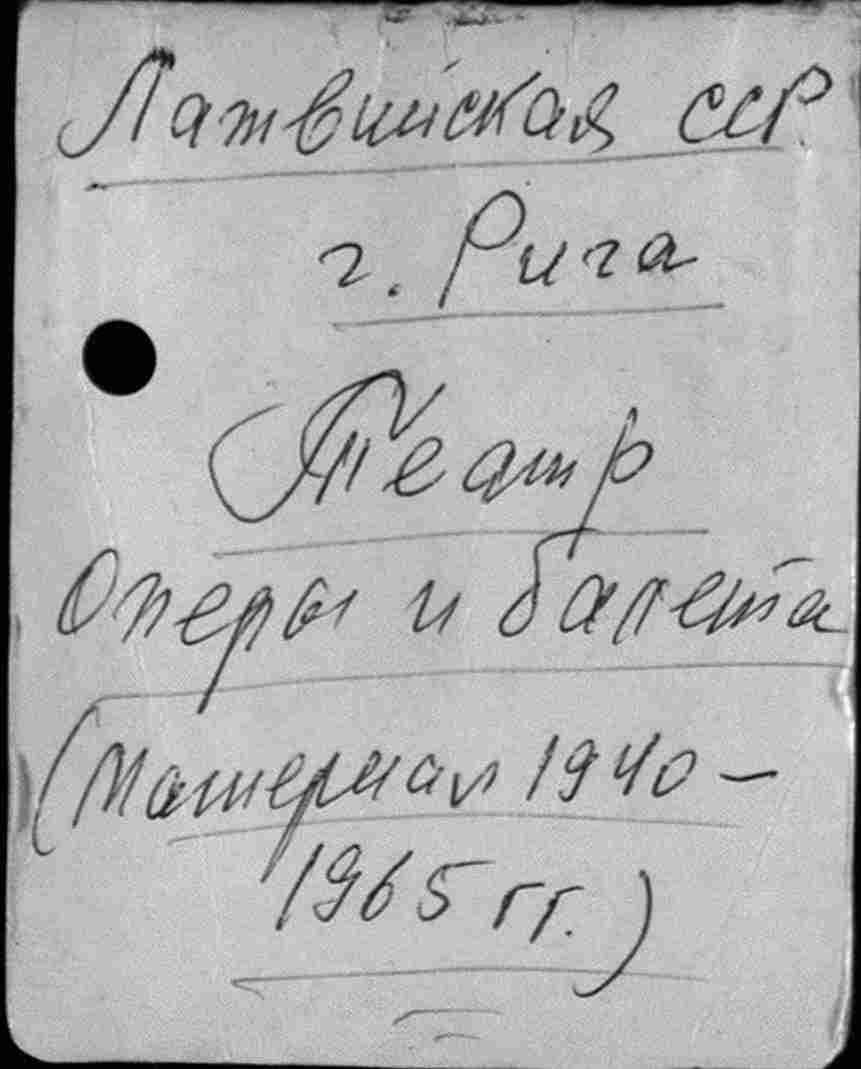 Латвийская ССР.
г. Рига
Театр
Оперы и балета
(Материал 1940 –
1965 гг.)